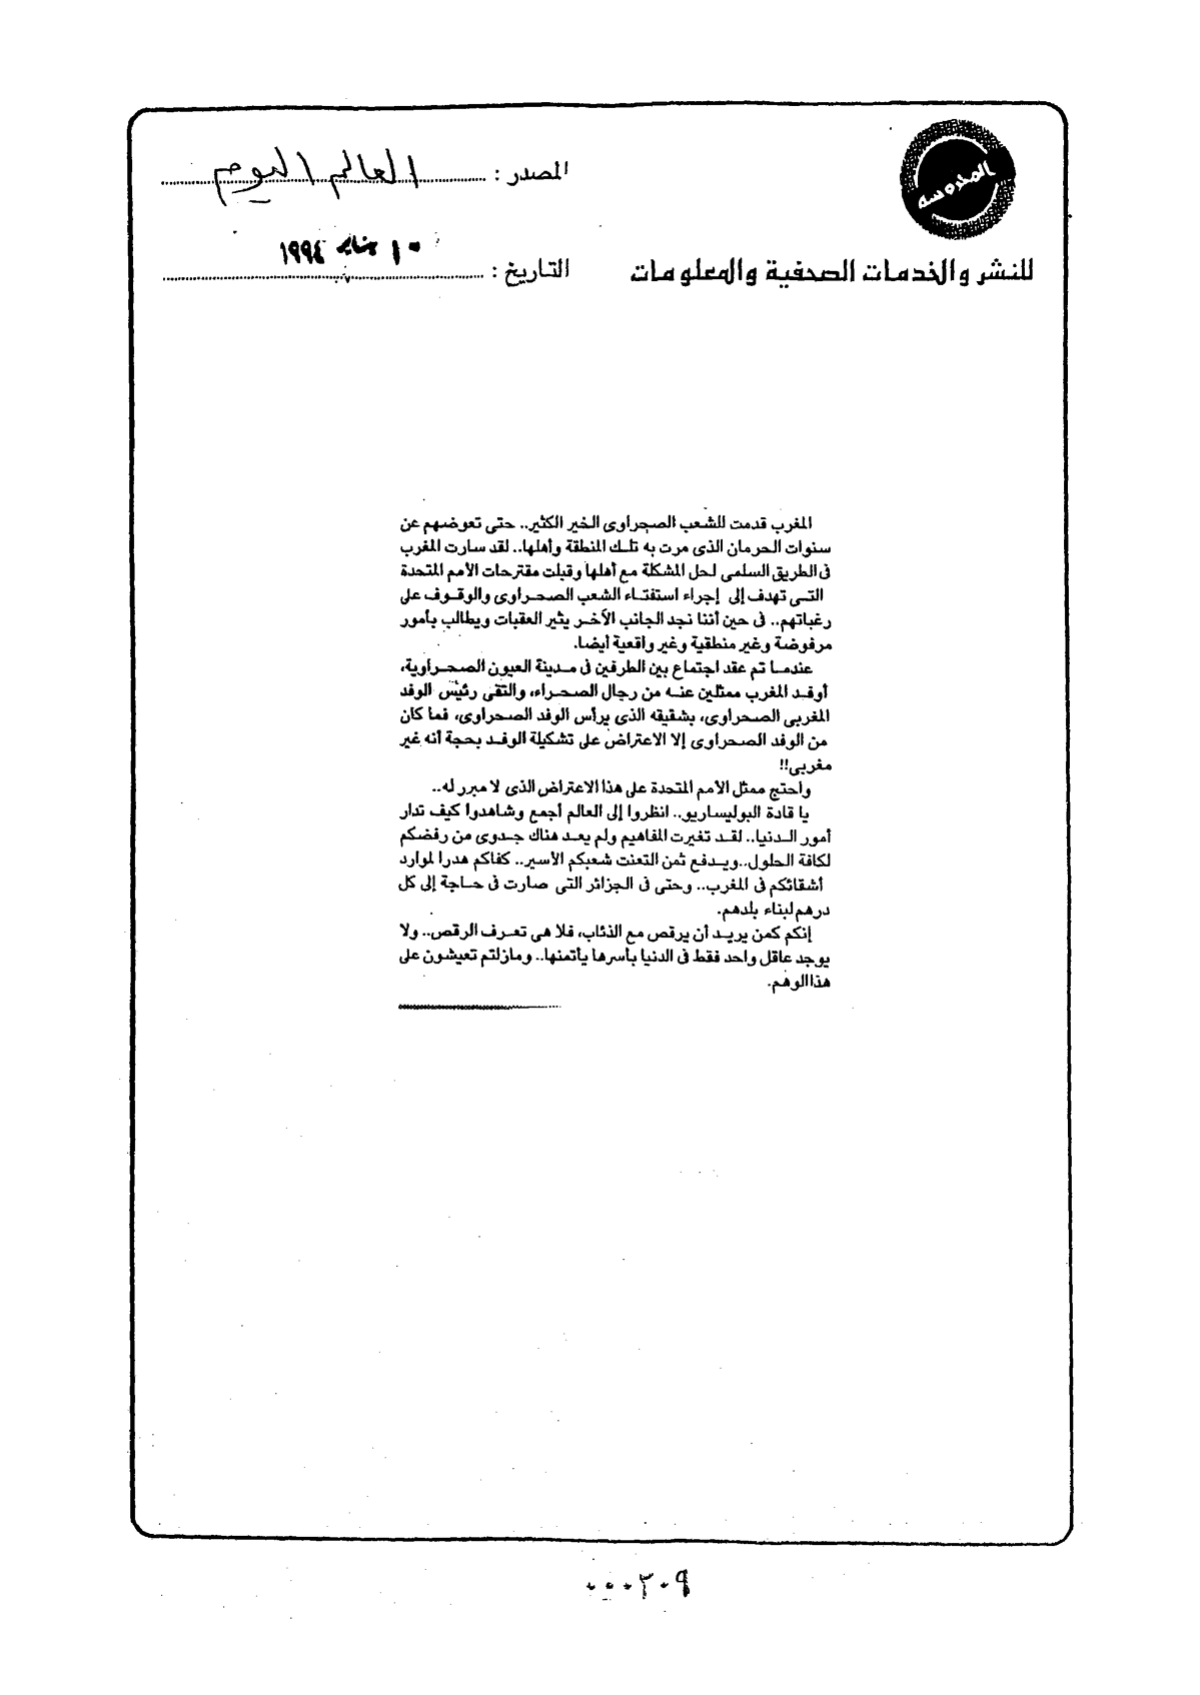 المحروسة
المصدر : العالم اليوم
للنشر والخدمات الصحفية والمعلومات
التاريخ : ١٠ يناير ١٩٩٤
المغرب قدمت للشعب الصحراوى الخير الكثير.. حتى تعوضهم عن
سنوات الحرمان الذى مرت به تلك المنطقة وأهلها.. لقد سارت المغرب
فى الطريق السلمى لحل المشكلة مع أهلها وقبلت مقترحات الأمم المتحدة
التى تهدف إلى إجراء استفتاء الشعب الصحراوى والوقوف على
رغباتهم.. فى حين أننا نجد الجانب الآخر يثير العقبات ويطالب بأمور
مرفوضة وغير منطقية وغير واقعية أيضا.
عندما تم عقد اجتماع بين الطرفين فى مدينة العيون الصحراوية،
أوفد المغرب ممثلين عنه من رجال الصحراء، والتقى رئيس الوفد
المغربى الصحراوى، بشقيقه الذى يرأس الوفد الصحراوى، فما كان
من الوفد الصحراوى إلا الاعتراض على تشكيلة الوفد بحجة أنه غير
مغربى!!
واحتج ممثل الأمم المتحدة على هذا الاعتراض الذى لا مبرر له..
يا قادة البوليساريو.. انظروا إلى العالم أجمع وشاهدوا كيف تدار
أمور الدنيا.. لقد تغيرت المفاهيم ولم يعد هناك جدوى من رفضكم
لكافة الحلول.. ويدفع ثمن التعنت شعبكم الأسير.. كفاكم هدرا لموارد
أشقائكم فى المغرب.. وحتى فى الجزائر التى صارت فى حاجة إلى كل
درهم لبناء بلدهم.
إنكم كمن يريد أن يرقص مع الذئاب، فلا هى تعرف الرقص.. ولا
يوجد عاقل واحد فقط فى الدنيا بأسرها يأتمنها.. ومازلتم تعيشون على
هذا الوهم.
٠٠٠٢٠٩